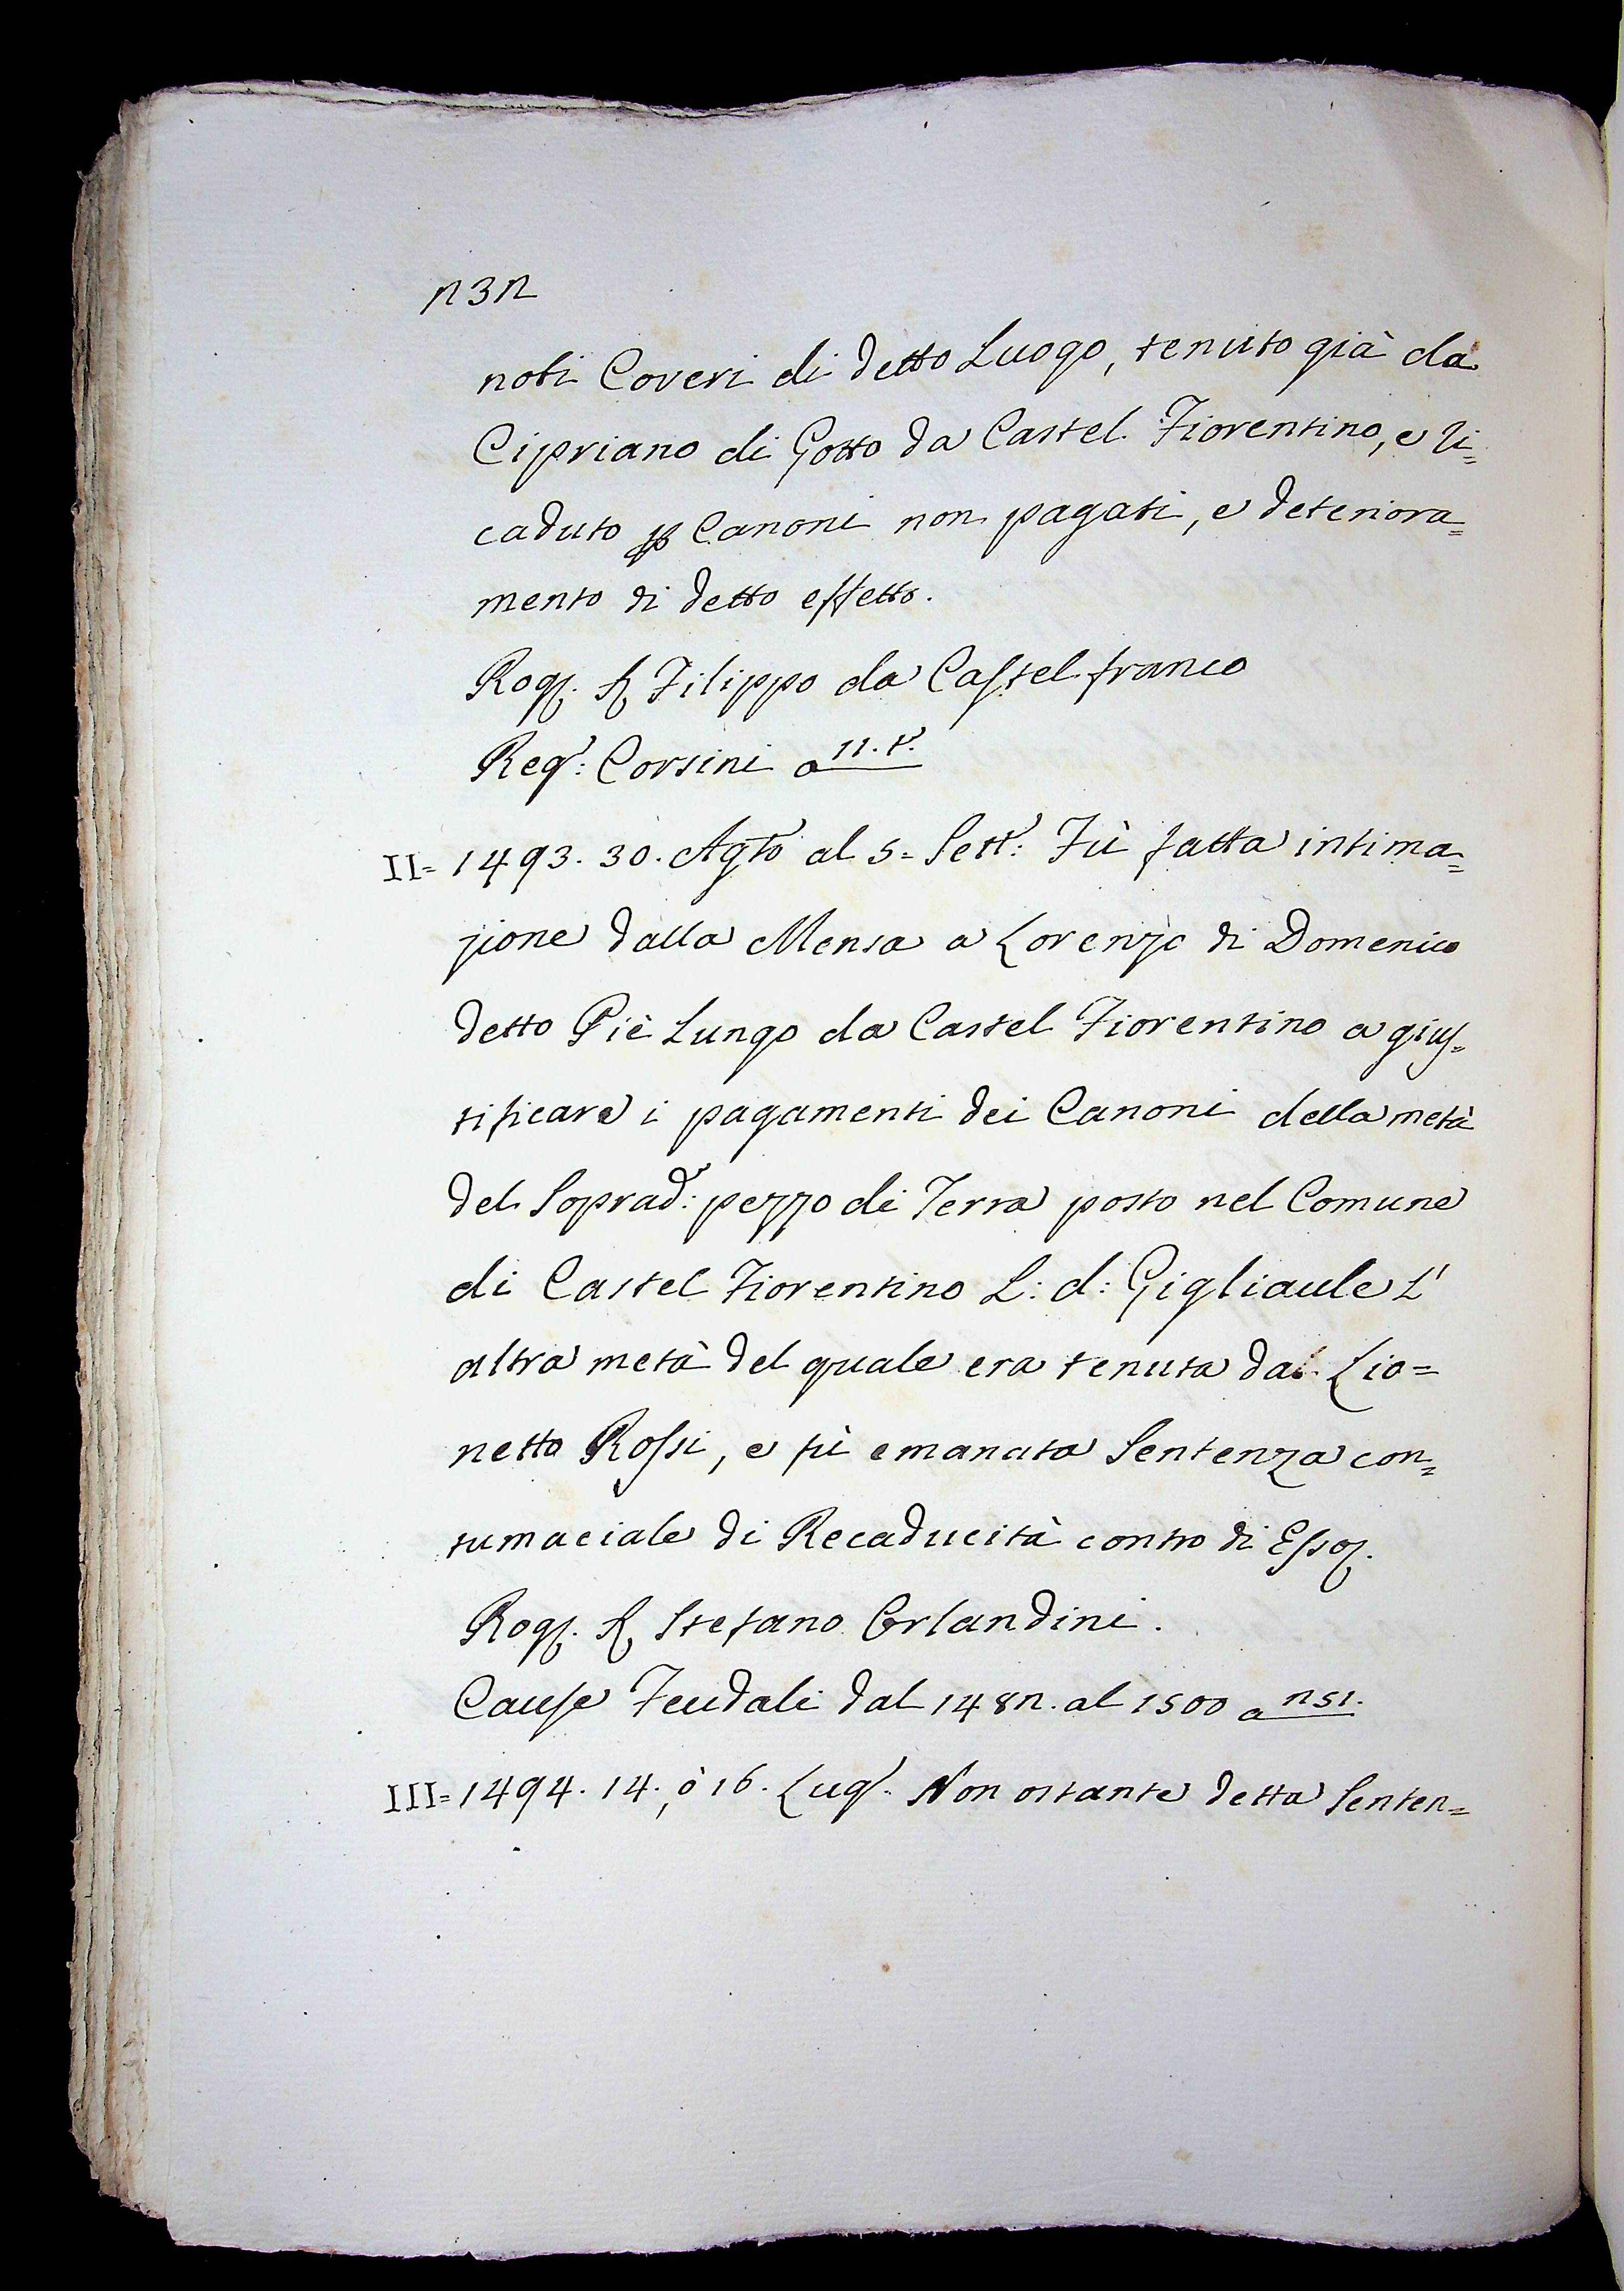 232
noti Coveri di detto Luogo, tenuto già da
Cipriano di Gotto da Castel Fiorentino, e ri=
caduto p Canoni non pagati, e deteriora=
mento di detto effetto.
Rog. S Filippo da Castel franco
Reg: Corsini a 11. t.
II= 1493. 30. Agto al 5= Sett: Fù fatta intima=
zione dalla Mensa a Lorenzo di Domenico
detto Piè Lungo da Castel Fiorentino a gius=
tificare i pagamenti dei Canoni della metà
del Soprad: pezzo di Terra posto nel Comune
di Castel Fiorentino L: d: Gigliaule L'
altra metà del quale era tenuta dal Lio=
netto Rossi, e fù emanata Sentenza con=
tumaciale di Recaducità contro di Esso.
Rog. S Stefano Orlandini.
Cause Feudali dal 1482. al 1500 a 251.
III= 1494. 14., ò 16. Lug. Non ostante detta Senten=